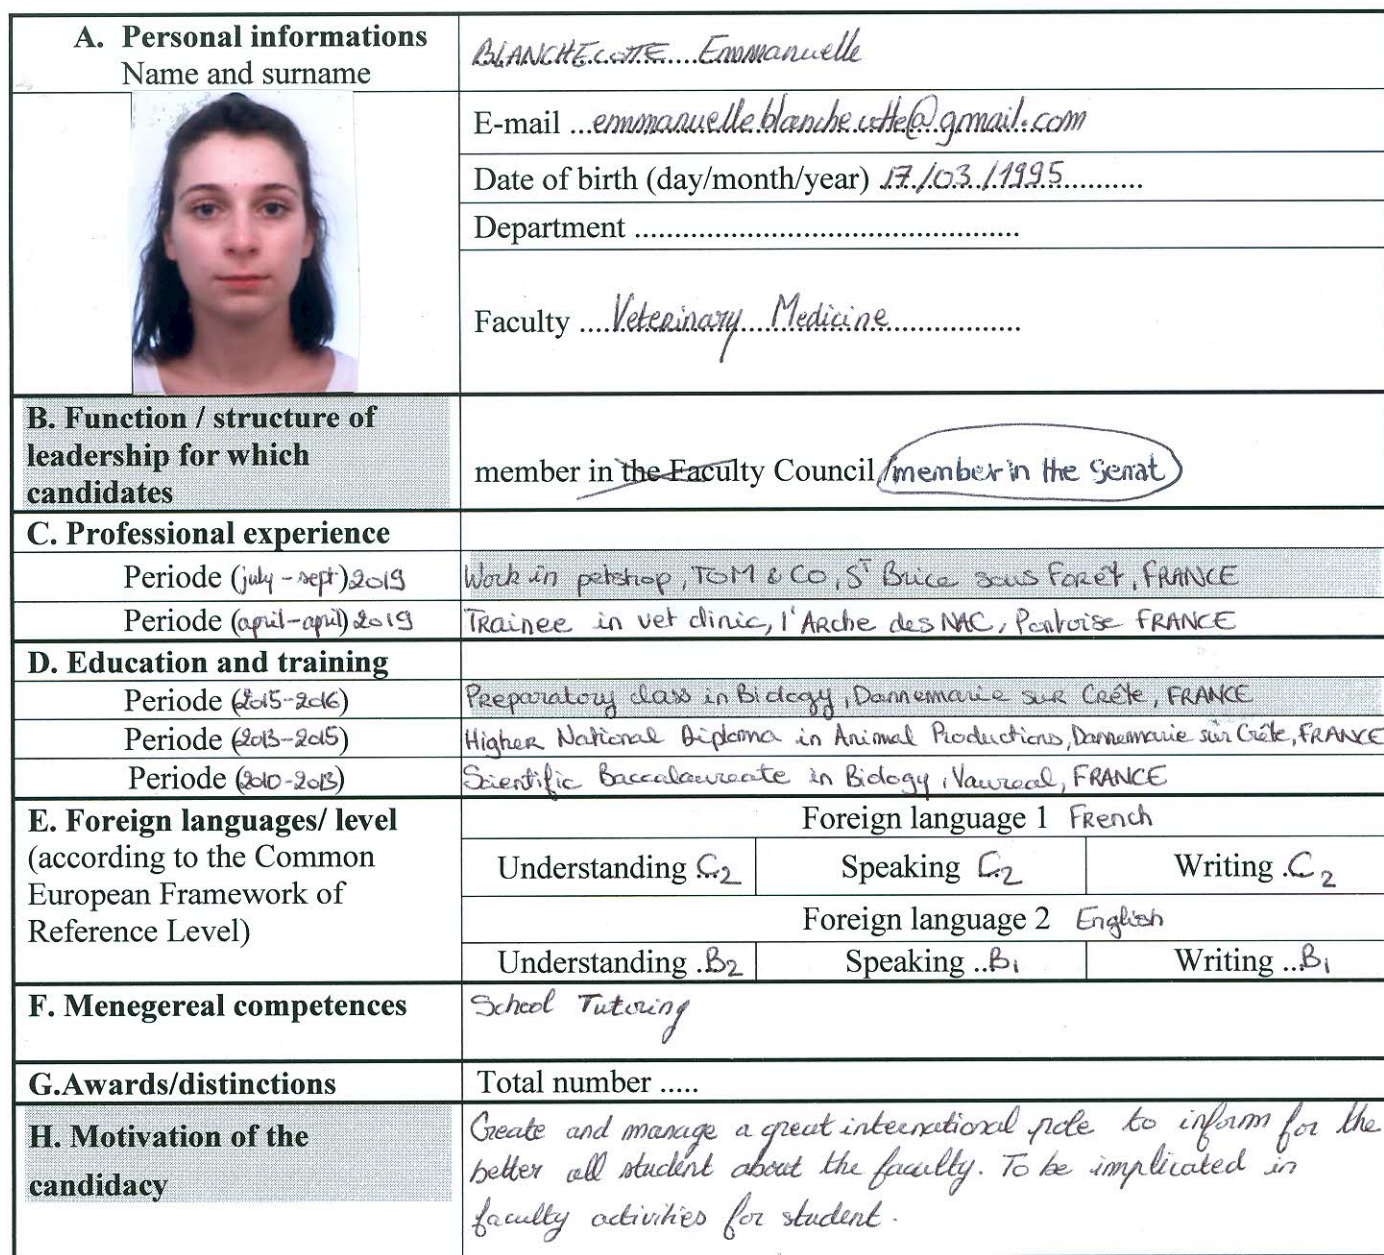 A. Personal informations
Name and surname
BLANCHECOTTE....Emmanuelle
E-mail ...emmanuelle.blanchecotte@gmail.com
Date of birth (day/month/year) 17/03/1995..........
Department ................................................
Faculty ....Veterinary...Medicine.................
B. Function / structure of
leadership for which
candidates
member in the Faculty Council /member in the Senat
C. Professional experience
Periode (july - sept) 2019
Work in petshop, TOM & CO, ST Brice sous Forêt, FRANCE
Periode (april-april) 2019
Trainee in vet clinic, l'Arche des NAC, Pontoise FRANCE
D. Education and training
Periode (2015-2016)
Preparatory class in Biology, Dannemarie sur Crête, FRANCE
Periode (2013-2015)
Higher National Diploma in Animal Productions, Dannemarie sur Crête, FRANCE
Periode (2010-2013)
Scientific Baccalaureate in Biology, Vaureal, FRANCE
E. Foreign languages/ level
(according to the Common
European Framework of
Reference Level)
Foreign language 1 French
Understanding C2 Speaking C2 Writing .C2
Foreign language 2 English
Understanding .B2 Speaking ..B1 Writing ..B1
F. Menegereal competences
School Tutoring
G.Awards/distinctions
Total number .....
H. Motivation of the
candidacy
Create and manage a great international pole to inform for the
better all student about the faculty. To be implicated in
faculty activities for student.